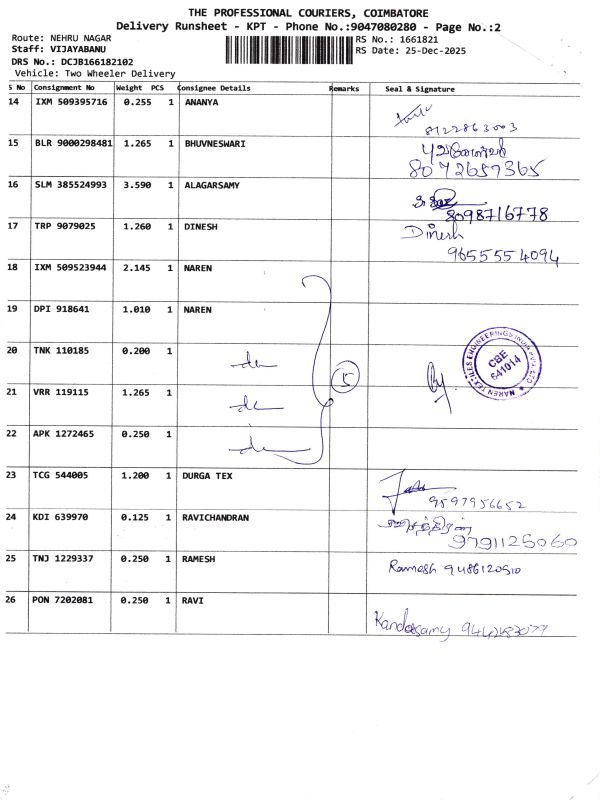 THE PROFESSIONAL COURIERS, COIMBATORE
Delivery Runsheet - KPT - Phone No.:9047080280 - Page No.:2
Route: NEHRU NAGAR
RS No.: 1661821
Staff: VIJAYABANU
RS Date: 25-Dec-2025
DRS No.: DCJB166182102
Vehicle: Two Wheeler Delivery
S No Consignment No Weight PCS Consignee Details Remarks Seal & Signature
14 IXM 509395716 0.255 1 ANANYA
8122863003
15 BLR 9000298481 1.265 1 BHUVNESWARI
புவனேஸ்வரி
8072657365
16 SLM 385524993 3.590 1 ALAGARSAMY
8098716778
17 TRP 9079025 1.260 1 DINESH Dinesh
9655554094
18 IXM 509523944 2.145 1 NAREN
19 DPI 918641 1.010 1 NAREN
20 TNK 110185 0.200 1
do
5
NAREN TEXTILES ENGINEERINGS INDIA PVT LTD
CBE
641014
21 VRR 119115 1.265 1
do
22 APK 1272465 0.250 1
do
23 TCG 544005 1.200 1 DURGA TEX
9597956652
24 KDI 639970 0.125 1 RAVICHANDRAN
9791125060
25 TNJ 1229337 0.250 1 RAMESH Ramesh 9486120510
26 PON 7202081 0.250 1 RAVI
Kandasamy